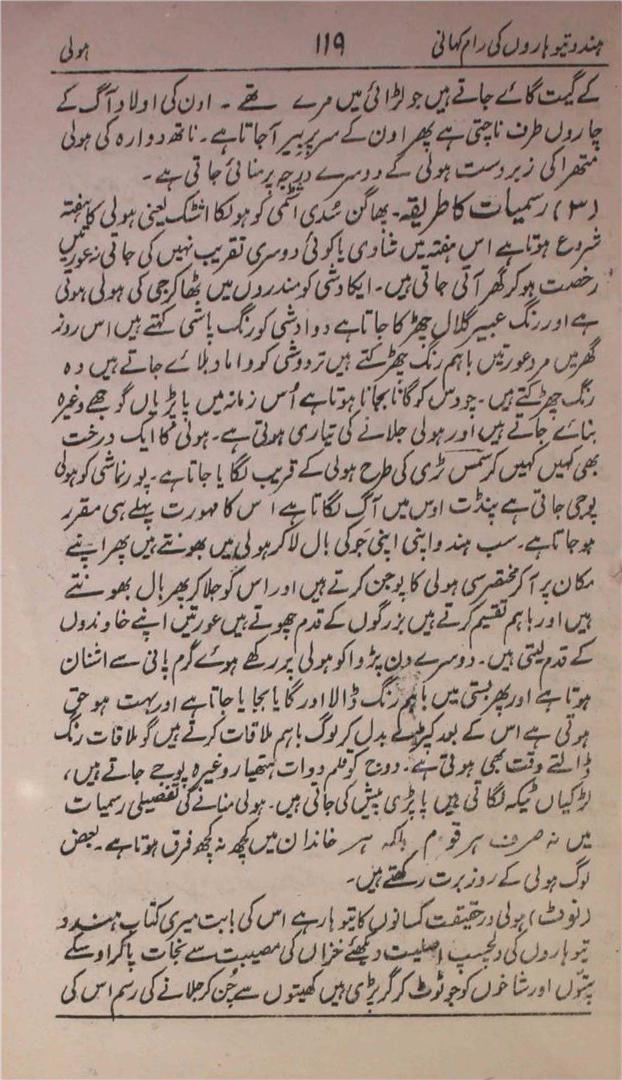 ہندو تیوہاروں کی رام کہانی ۱۱۹ ہولی
کے گیت گائے جاتے ہیں جو لڑائی میں مرے تھے ۔ اون کی اولاد آگ کے
چاروں طرف ناچتی ہے پھر اون کے سر پر بیر آجاتا ہے۔ ناتھ دوارہ کی ہولی
متھرا کی زبردست ہولی کے دوسرے درجہ پر منائی جاتی ہے۔
(۳) رسمیات کا طریقہ۔ پھاگن سُدی اشٹمی کو ہولکا اشٹک یعنی ہولی کا ہفتہ
شروع ہوتا ہے اس ہفتہ میں شادی یا کوئی دوسری تقریب نہیں کی جاتی نہ عورتیں
رخصت ہو کر گھر آتی جاتی ہیں۔ ایکادشی کو مندروں میں ٹھاکرجی کی ہولی ہوتی
ہے اور رنگ عبیر گلال چھڑکا جاتا ہے دوادشی کو رنگ پاشی کہتے ہیں اس روز
گھر میں مرد عورتیں باہم رنگ چھڑکتے ہیں تردوشی کو داماد بلائے جاتے ہیں وہ
رنگ چھڑکتے ہیں۔ چودس کو گانا بجانا ہوتا ہے اُس زمانہ میں پاپڑیاں گوجھے وغیرہ
بنائے جاتے ہیں اور ہولی جلانے کی تیاری ہوتی ہے۔ ہولی کا ایک درخت
بھی کہیں کہیں کرسمس ٹری کی طرح ہولی کے قریب لگایا جاتا ہے۔ پورنماشی کو ہولی
پوجی جاتی ہے پنڈت اوس میں آگ لگاتا ہے اس کا مہورت پہلے ہی مقرر
ہو جاتا ہے۔ سب ہندو اپنی اپنی جَو کی بال لا کر ہولی میں بھونتے ہیں پھر اپنے
مکان پر آ کر مختصر سی ہولی کا پوجن کرتے ہیں اور اس کو جلا کر پھر بال بھونتے
ہیں اور باہم تقسیم کرتے ہیں بزرگوں کے قدم چھوتے ہیں عورتیں اپنے خاوندوں
کے قدم لیتی ہیں۔ دوسرے دن پڑوا کو ہولی پر رکھے ہوئے گرم پانی سے اشنان
ہوتا ہے اور پھر بستی میں باہم رنگ ڈالا اور گایا بجایا جاتا ہے اور بہت ہو حق
ہوتی ہے اس کے بعد کپڑے بدل کر لوگ باہم ملاقات کرتے ہیں گو ملاقات رنگ
ڈالتے وقت بھی ہوتی ہے۔ دوج کو قلم دوات ہتھیار وغیرہ پوجے جاتے ہیں،
لڑکیاں ٹیکہ لگاتی ہیں پاپڑی پیش کی جاتی ہیں۔ ہولی منانے کی تفصیلی رسمیات
میں نہ صرف ہر قوم بلکہ ہر خاندان میں کچھ نہ کچھ فرق ہوتا ہے۔ بعض
لوگ ہولی کے روز برت رکھتے ہیں۔
(نوٹ) ہولی درحقیقت کسانوں کا تیوہار ہے اس کی بابت میری کتاب ہندو
تیوہاروں کی دلچسپ اصلیت دیکھئے خزاں کی مصیبت سے نجات پا کر اوسکے
پتّوں اور شاخوں کو جو ٹوٹ کر گر پڑی ہیں کھیتوں سے چُن کر جلانے کی رسم اس کی